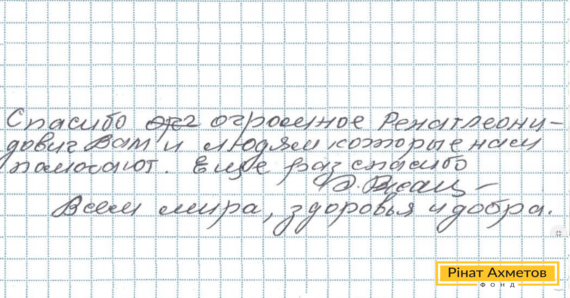 Спасибо огромное Ренатлеони-
дович Вам и людям которые нам
помогают. Еще раз спасибо
Всем мира, здоровья и добра.
Рінат Ахметов
ФОНД